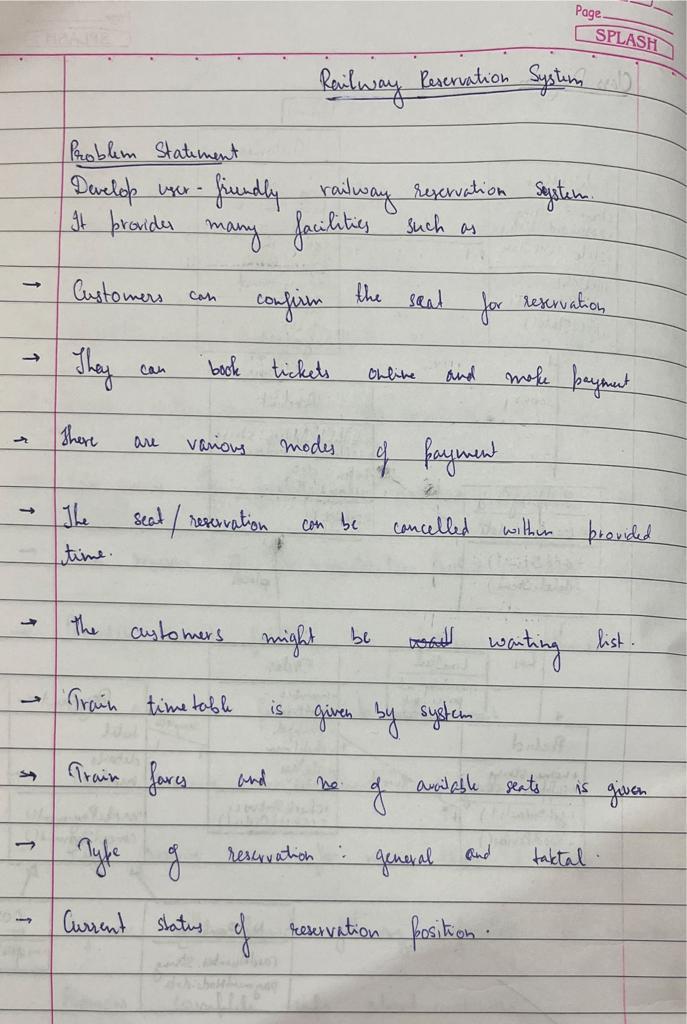 Page
SPLASH
Railway Reservation System
Problem Statement
Develop user-friendly railway reservation system.
It provides many facilities such as
→ Customers can confirm the seat for reservation
→ They can book tickets online and make payment
→ There are various modes of payment
→ The seat/reservation can be cancelled within provided
time.
→ The customers might be waiting list.
→ Train timetable is given by system
→ Train fares and no. of available seats is given
→ Type of reservation : general and taktal.
→ Current status of reservation position.